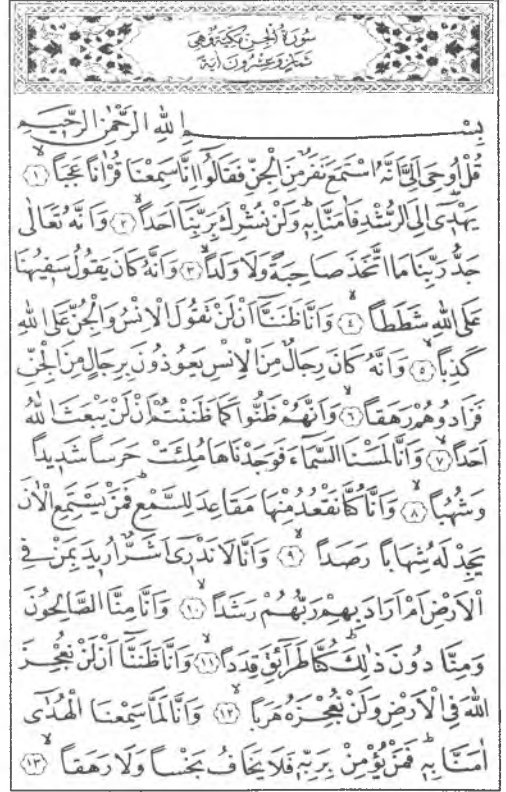 سُورَةُ الْجِنِّ مَكِّيَّةٌ وَهِيَ
ثَمَانٍ وَعِشْرُونَ اٰيَةً
بِسْمِ اللّٰهِ الرَّحْمٰنِ الرَّحِيمِ
قُلْ اُو۫حِيَ اِلَيَّ اَنَّهُ اسْتَمَعَ نَفَرٌ مِنَ الْجِنِّ فَقَالُٓوا اِنَّا سَمِعْنَا قُرْاٰناً عَجَباًۙ ﴿١﴾
يَهْد۪ٓي اِلَى الرُّشْدِ فَاٰمَنَّا بِه۪ۜ وَلَنْ نُشْرِكَ بِرَبِّنَٓا اَحَداًۙ ﴿٢﴾ وَاَنَّهُ تَعَالٰى
جَدُّ رَبِّنَا مَا اتَّخَذَ صَاحِبَةً وَلَا وَلَداًۙ ﴿٣﴾ وَاَنَّهُ كَانَ يَقُولُ سَف۪يهُنَا
عَلَى اللّٰهِ شَطَطاًۙ ﴿٤﴾ وَاَنَّا ظَنَنَّٓا اَنْ لَنْ تَقُولَ الْاِنْسُ وَالْجِنُّ عَلَى اللّٰهِ
كَذِباًۙ ﴿٥﴾ وَاَنَّهُ كَانَ رِجَالٌ مِنَ الْاِنْسِ يَعُوذُونَ بِرِجَالٍ مِنَ الْجِنِّ
فَزَادُوهُمْ رَهَقاًۙ ﴿٦﴾ وَاَنَّهُمْ ظَنُّوا كَمَا ظَنَنْتُمْ اَنْ لَنْ يَبْعَثَ اللّٰهُ
اَحَداًۙ ﴿٧﴾ وَاَنَّا لَمَسْنَا السَّمَٓاءَ فَوَجَدْنَاهَا مُلِئَتْ حَرَساً شَد۪يداً
وَشُهُباًۙ ﴿٨﴾ وَاَنَّا كُنَّا نَقْعُدُ مِنْهَا مَقَاعِدَ لِلسَّمْعِۜ فَمَنْ يَسْتَمِعِ الْاٰنَ
يَجِدْ لَهُ شِهَاباً رَصَداًۙ ﴿٩﴾ وَاَنَّا لَا نَدْر۪ٓي اَشَرٌّ اُر۪يدَ بِمَنْ فِي
الْاَرْضِ اَمْ اَرَادَ بِهِمْ رَبُّهُمْ رَشَداًۙ ﴿١٠﴾ وَاَنَّا مِنَّا الصَّالِحُونَ
وَمِنَّا دُونَ ذٰلِكَۜ كُنَّا طَرَٓائِقَ قِدَداًۙ ﴿١١﴾ وَاَنَّا ظَنَنَّٓا اَنْ لَنْ نُعْجِزَ
اللّٰهَ فِي الْاَرْضِ وَلَنْ نُعْجِزَهُ هَرَباًۙ ﴿١٢﴾ وَاَنَّا لَمَّا سَمِعْنَا الْهُدٰٓى
اٰمَنَّا بِه۪ۜ فَمَنْ يُؤْمِنْ بِرَبِّه۪ فَلَا يَخَافُ بَخْساً وَلَا رَهَقاًۙ ﴿١٣﴾